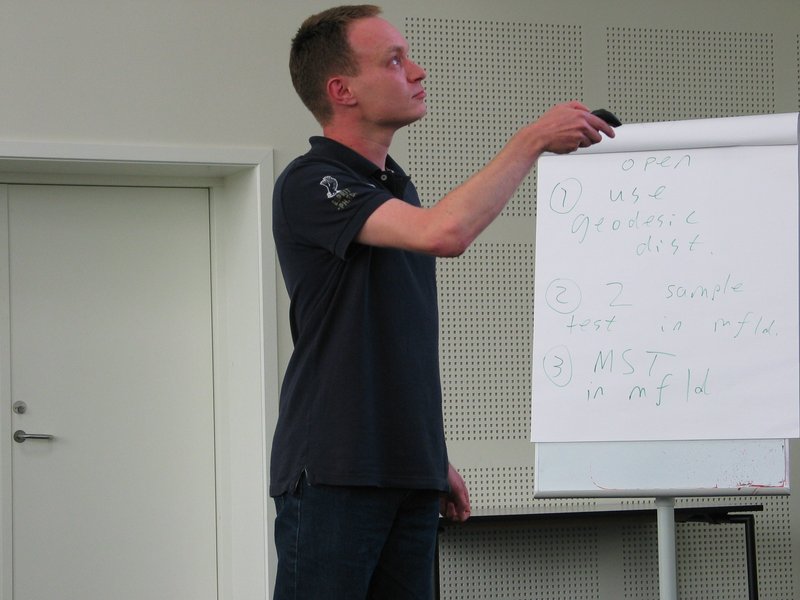 open
① use
geodesic
dist.
② 2 sample
test in mfld.
③ MST
in mfld